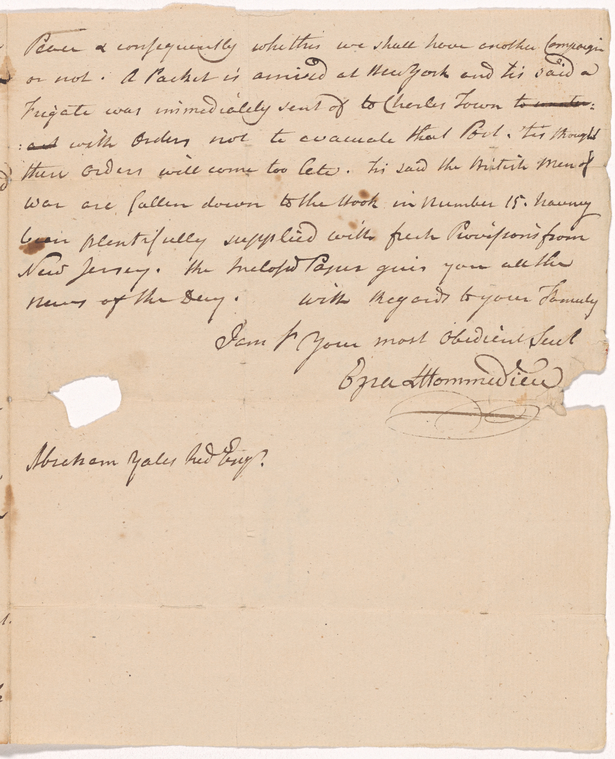 Peace & consequently whether we shall have another Campaign
or not. A Packet is arrived at New York and tis said a
Frigate was immediately sent of to Charles Town
with orders not to evacuate that Post. tis thought
these orders will come too late. tis said the British Men of
war are fallen down to the Hook in number 15. having
been plentifully supplied with fresh Provisions from
New Jersey. the Inclosd Paper gives you all the
news of the Day. with Regards to your Family
I am Sr Your most Obedient Servt
Ezra LHommedieu
Abraham Yates Esqr.